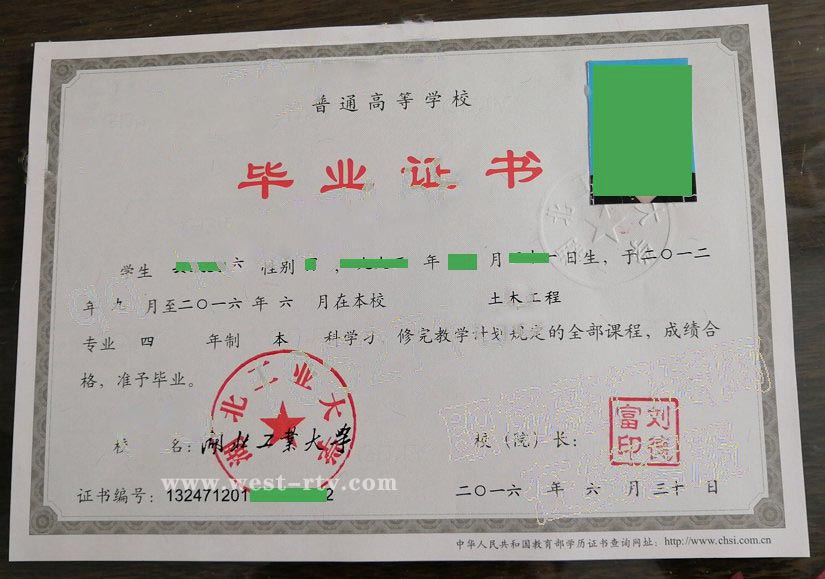 普通高等学校
毕业证书
学生 六 性别 , 年 月 一日生，于二〇一二
年 九 月至二〇一六 年 六 月在本校 土木工程
专业 四 年制 本 科学习，修完教学计划规定的全部课程，成绩合
格，准予毕业。
湖北工业大学
校 名：湖北工業大學 校（院）长：
刘德富印
www.west-rty.com
证书编号：132471201 2 二〇一六 年 六 月 三十 日
中华人民共和国教育部学历证书查询网址：http://www.chsi.com.cn